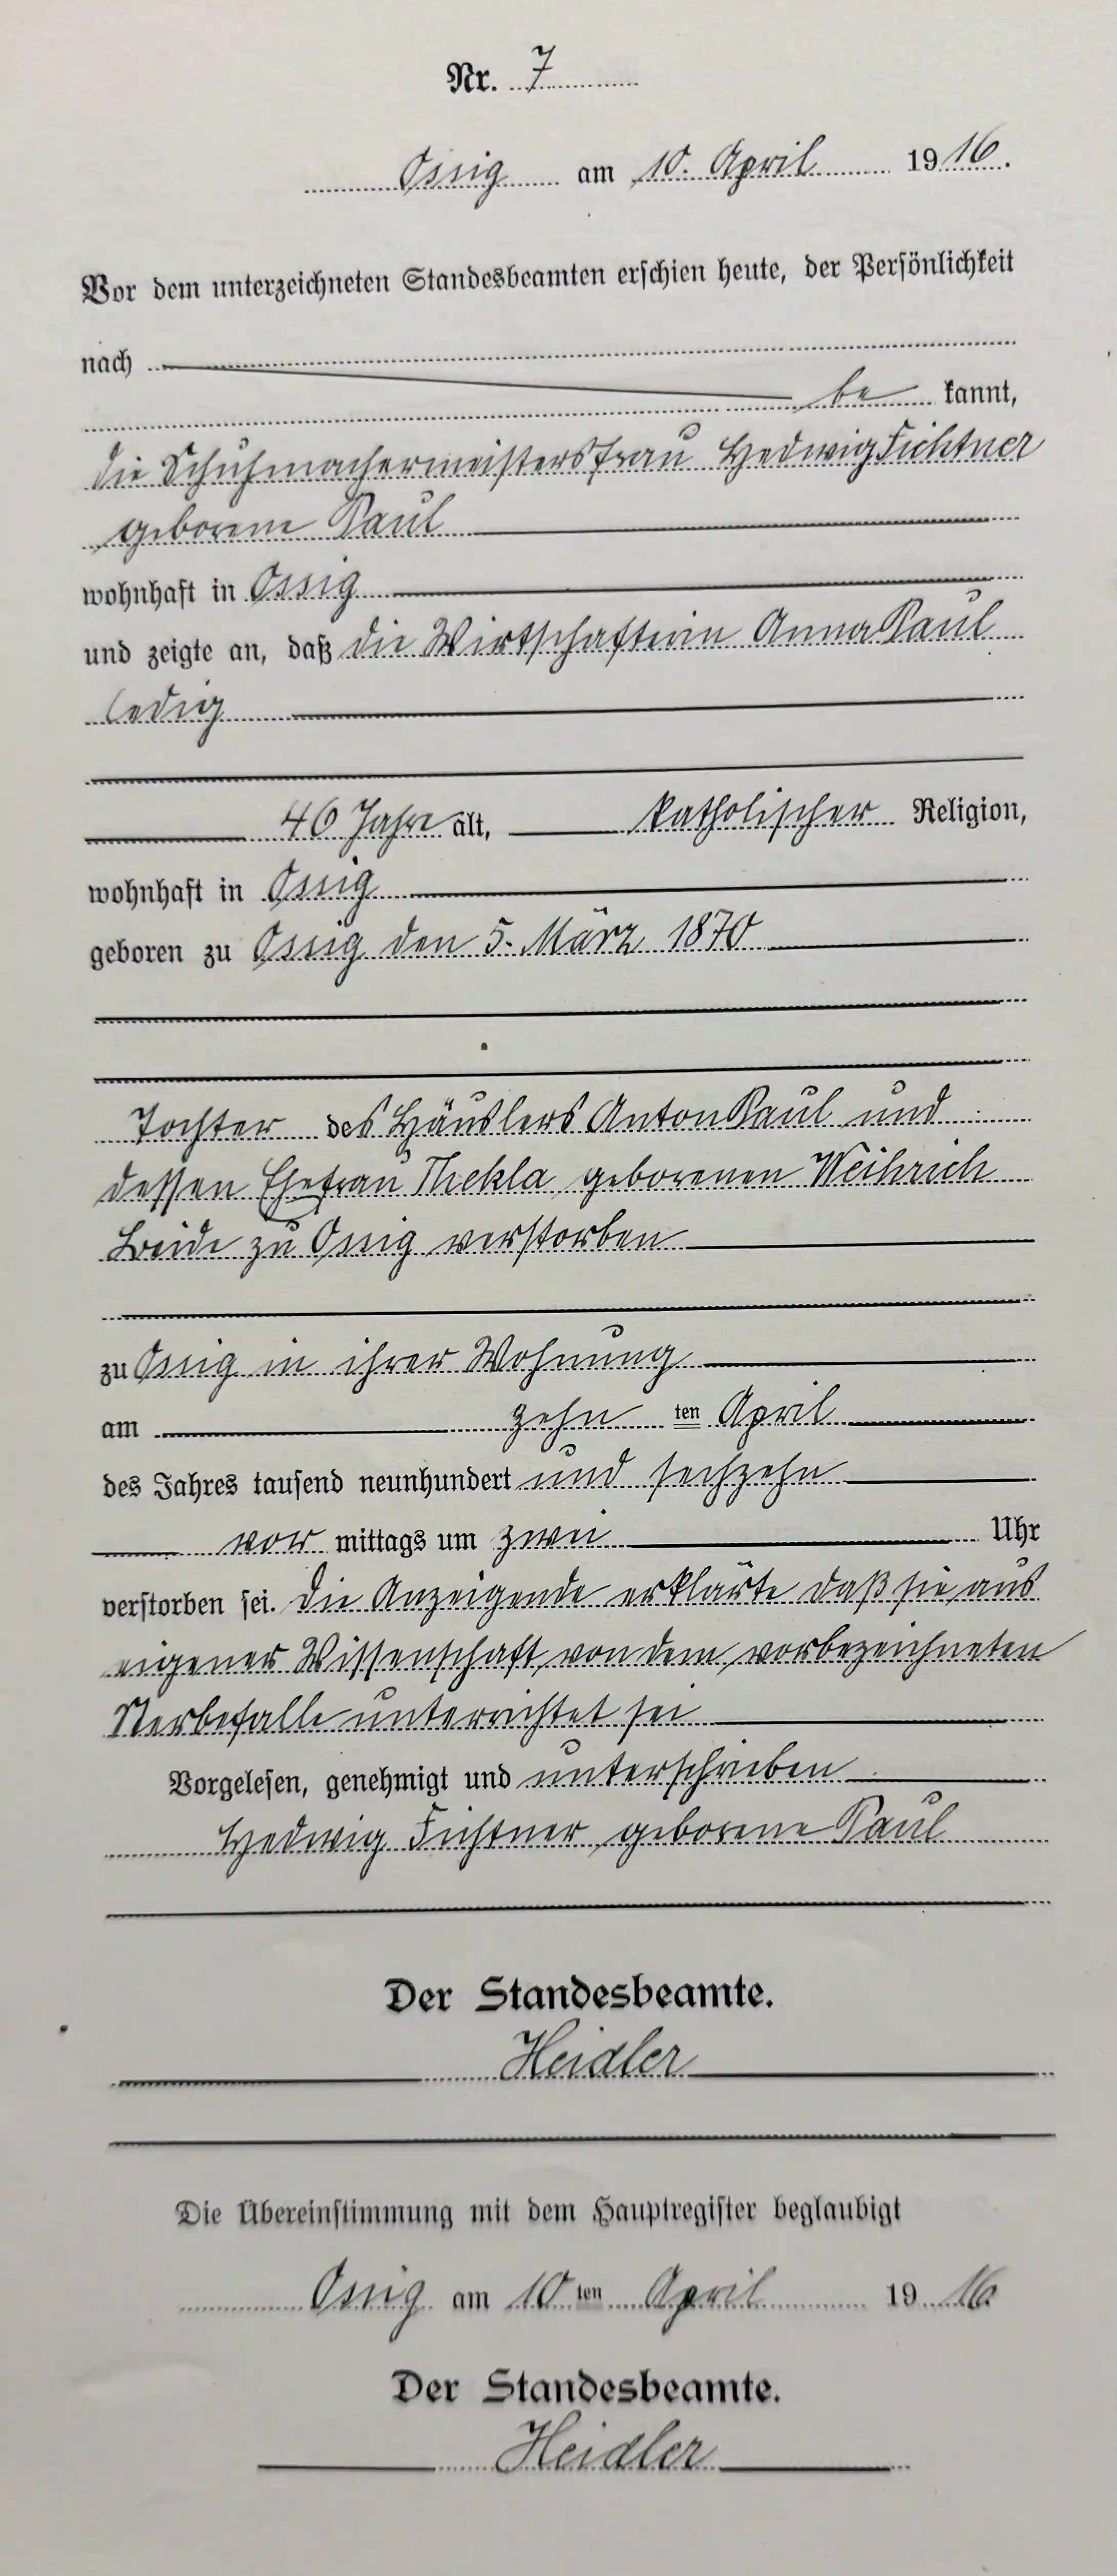 Nr. 7
Ossig am 10. April 1916.
Vor dem unterzeichneten Standesbeamten erschien heute, der Persönlichkeit
nach
be kannt,
die Schuhmachermeistersfrau Hedwig Fichtner
geborene Paul
wohnhaft in Ossig
und zeigte an, daß die Wirtschafterin Anna Paul
ledig
46 Jahre alt, katholischer Religion,
wohnhaft in Ossig
geboren zu Ossig den 5. März 1870
Tochter des Häuslers Anton Paul und
dessen Ehefrau Thekla geborenen Weihrich
Beide zu Ossig verstorben
zu Ossig in ihrer Wohnung
am zehn ten April
des Jahres tausend neunhundert und sechzehn
vor mittags um zwei Uhr
verstorben sei. Die Anzeigende erklärte daß sie aus
eigener Wissenschaft von dem vorbezeichneten
Sterbefalle unterrichtet sei
Vorgelesen, genehmigt und unterschrieben
Hedwig Fichtner geborene Paul
Der Standesbeamte.
Heidler
Die Übereinstimmung mit dem Hauptregister beglaubigt
Ossig am 10 ten April 1916
Der Standesbeamte.
Heidler